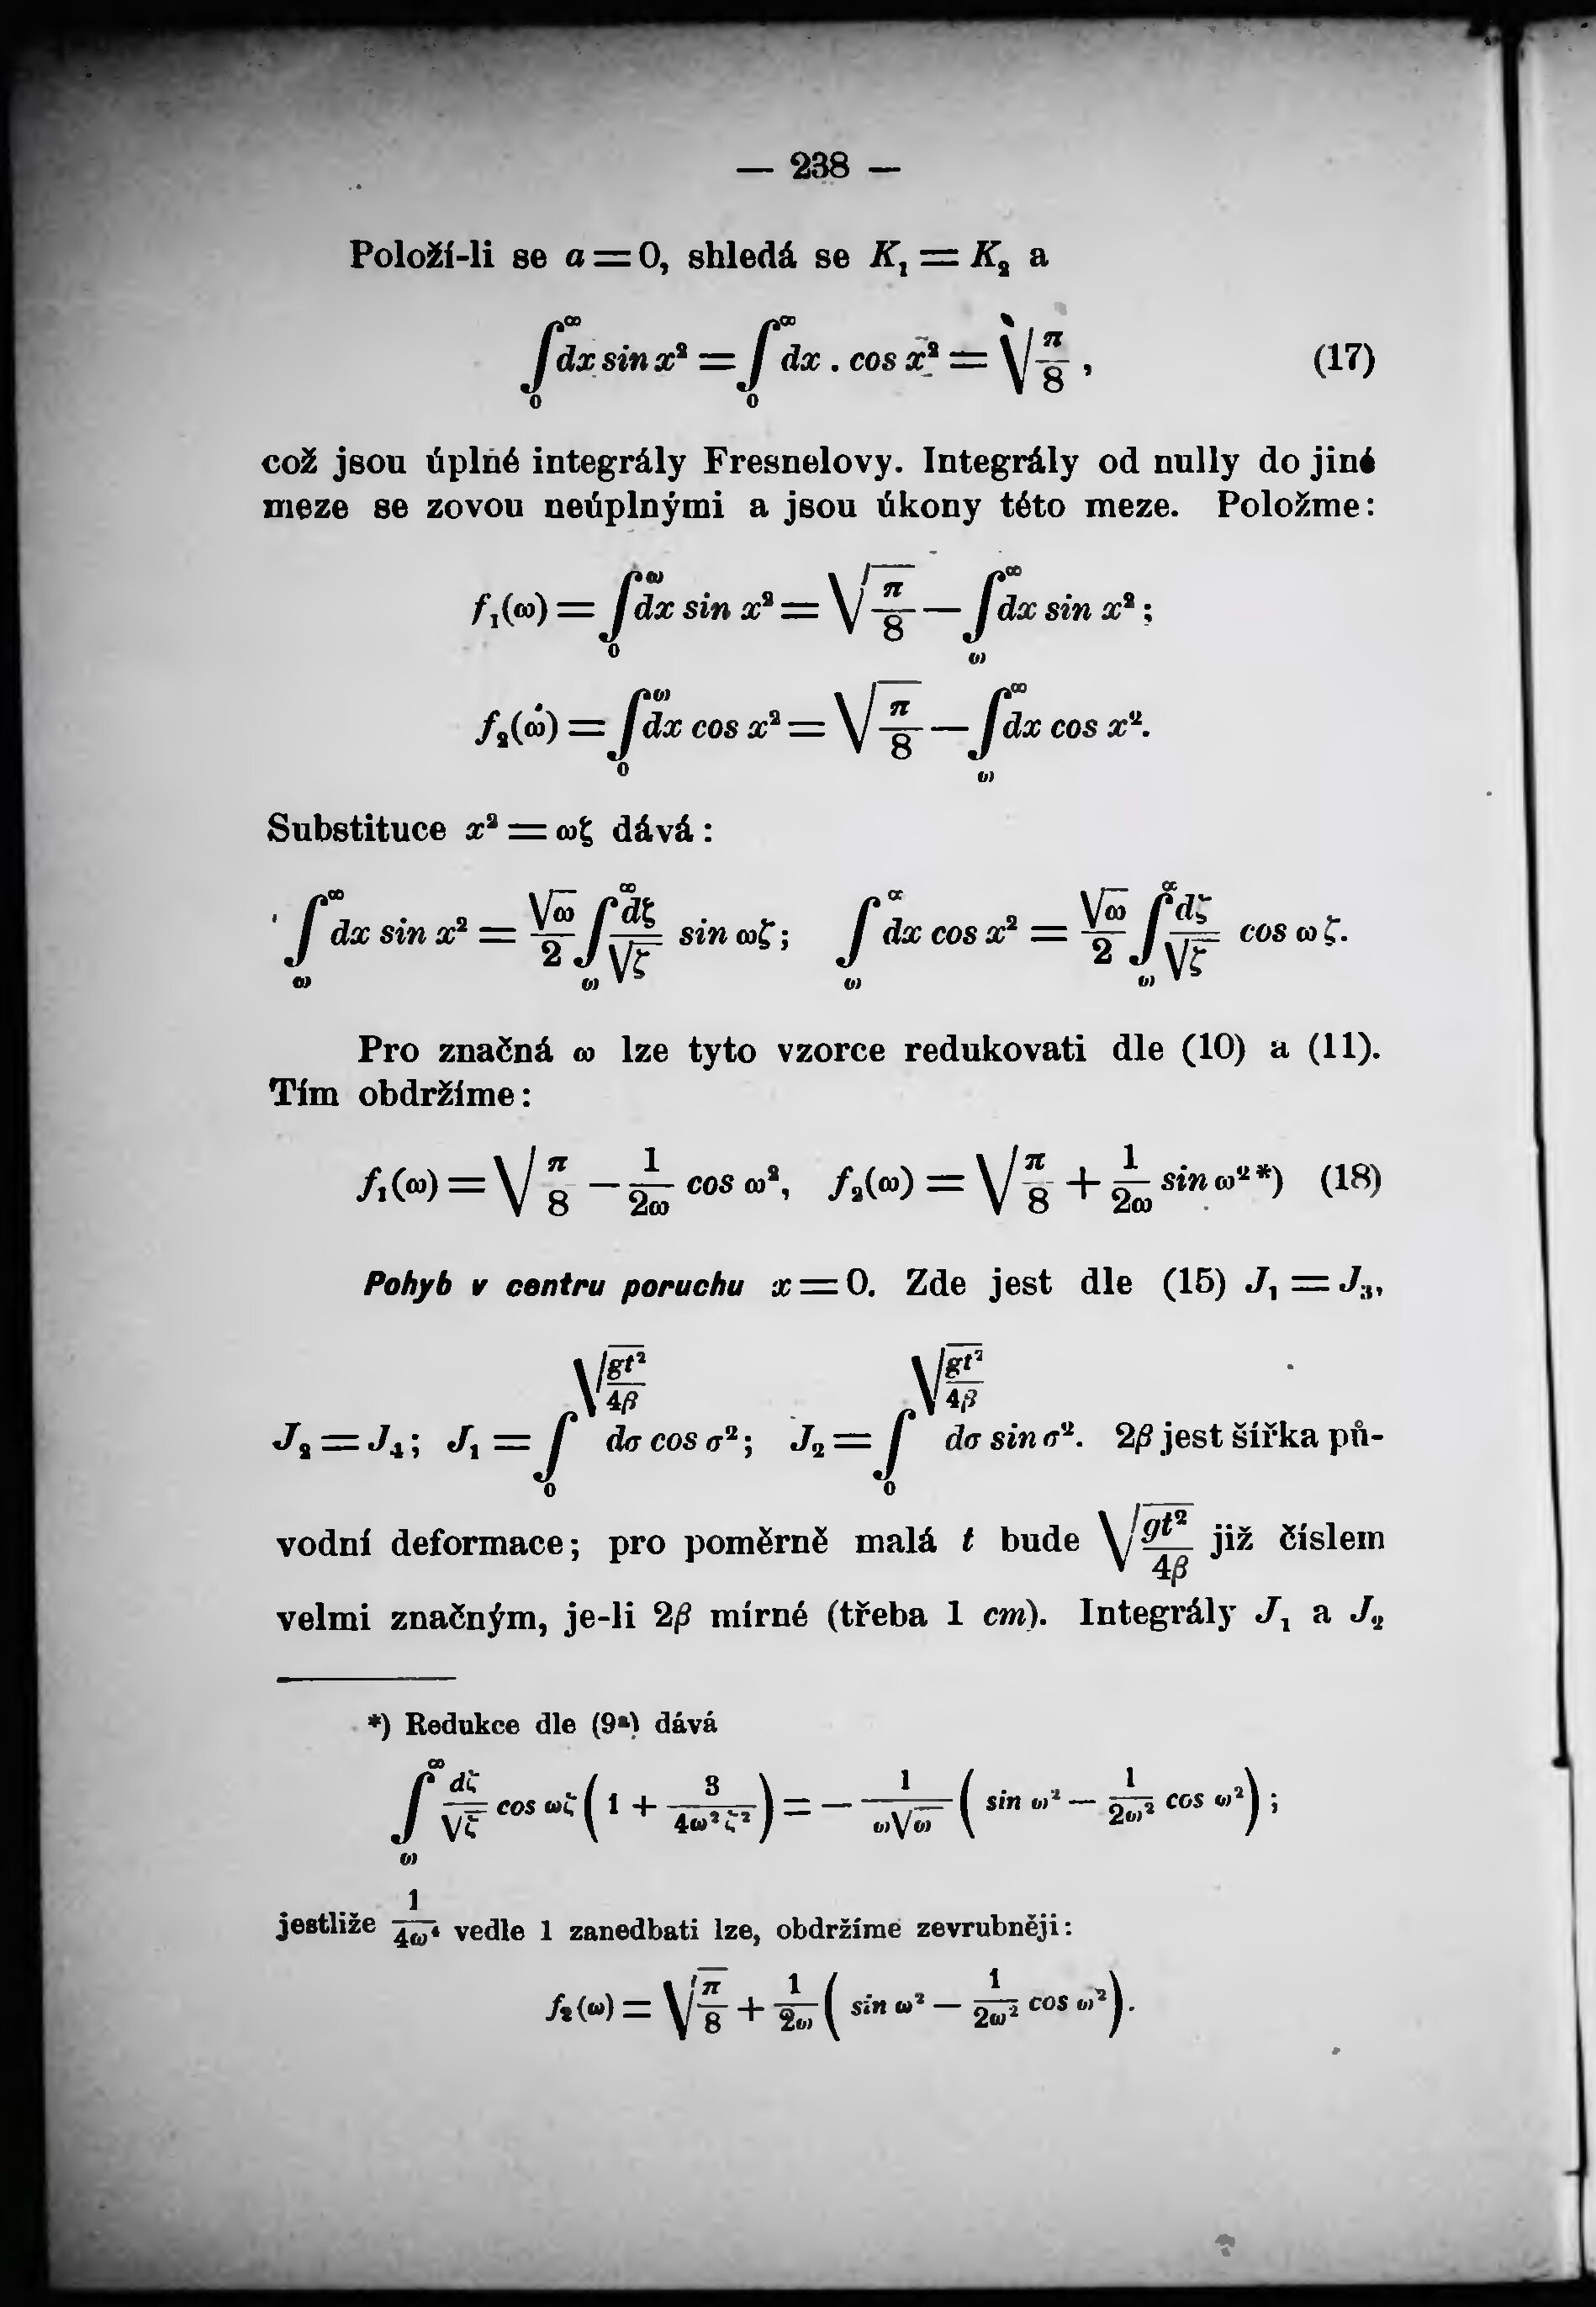 — 238 —
Položí-li se a = 0, shledá se K₁ = K₂ a
∫₀^∞ dx sin x² = ∫₀^∞ dx . cos x² = √(π/8) , (17)
což jsou úplné integrály Fresnelovy. Integrály od nully do jiné
meze se zovou neúplnými a jsou úkony této meze. Položme:
f₁(ω) = ∫₀^ω dx sin x² = √(π/8) — ∫_ω^∞ dx sin x² ;
f₂(ω) = ∫₀^ω dx cos x² = √(π/8) — ∫_ω^∞ dx cos x².
Substituce x² = ωζ dává:
∫_ω^∞ dx sin x² = √ω/2 ∫_ω^∞ dζ/√ζ sin ωζ ; ∫_ω^∞ dx cos x² = √ω/2 ∫_ω^∞ dζ/√ζ cos ωζ.
Pro značná ω lze tyto vzorce redukovati dle (10) a (11).
Tím obdržíme:
f₁(ω) = √(π/8) — 1/(2ω) cos ω², f₂(ω) = √(π/8) + 1/(2ω) sin ω² *) (18)
Pohyb v centru poruchu x = 0. Zde jest dle (15) J₁ = J₃,
J₂ = J₄; J₁ = ∫₀^√(gt²/4β) dσ cos σ²; J₂ = ∫₀^√(gt²/4β) dσ sin σ². 2β jest šířka pů-
vodní deformace; pro poměrně malá t bude √(gt²/4β) již číslem
velmi značným, je-li 2β mírné (třeba 1 cm). Integrály J₁ a J₂
*) Redukce dle (9ᵃ) dává
∫_ω^∞ dζ/√ζ cos ωζ (1 + 3/(4ω²ζ²)) = — 1/(ω√ω) (sin ω² — 1/(2ω²) cos ω²) ;
jestliže 1/(4ω⁴) vedle 1 zanedbati lze, obdržíme zevrubněji:
f₂(ω) = √(π/8) + 1/(2ω) (sin ω² — 1/(2ω²) cos ω²).